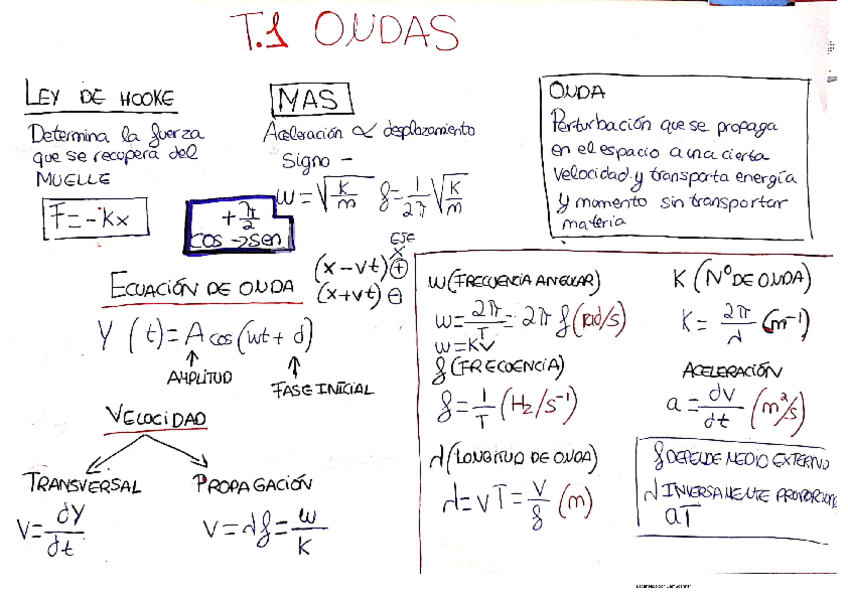 T.1 ONDAS
LEY DE HOOKE
Determina la fuerza
que se recupera del
MUELLE
F=-Kx
MAS
Aceleración ∝ desplazamiento
Signo -
ω=√(K/m) f=1/2π √(K/m)
+π/2
cos→sen
ONDA
Perturbación que se propaga
en el espacio a una cierta
velocidad y transporta energía
y momento sin transportar
materia
ECUACIÓN DE ONDA
EJE
X
(x-vt) ⊕
(x+vt) ⊖
Y (t)=A cos(ωt+d)
AMPLITUD
FASE INICIAL
VELOCIDAD
TRANSVERSAL
V=dY/dt
PROPAGACIÓN
V=λf=ω/K
ω(FRECUENCIA ANGULAR)
ω=2π/T=2πf(Rad/s)
ω=KV
f(FRECUENCIA)
f=1/T (Hz/s⁻¹)
λ(LONGITUD DE ONDA)
λ=VT=V/f (m)
K (Nº DE ONDA)
K=2π/λ (m⁻¹)
ACELERACIÓN
a=dv/dt (m²/s)
f DEPENDE MEDIO EXTERNO
λ INVERSAMENTE PROPORCION
aT